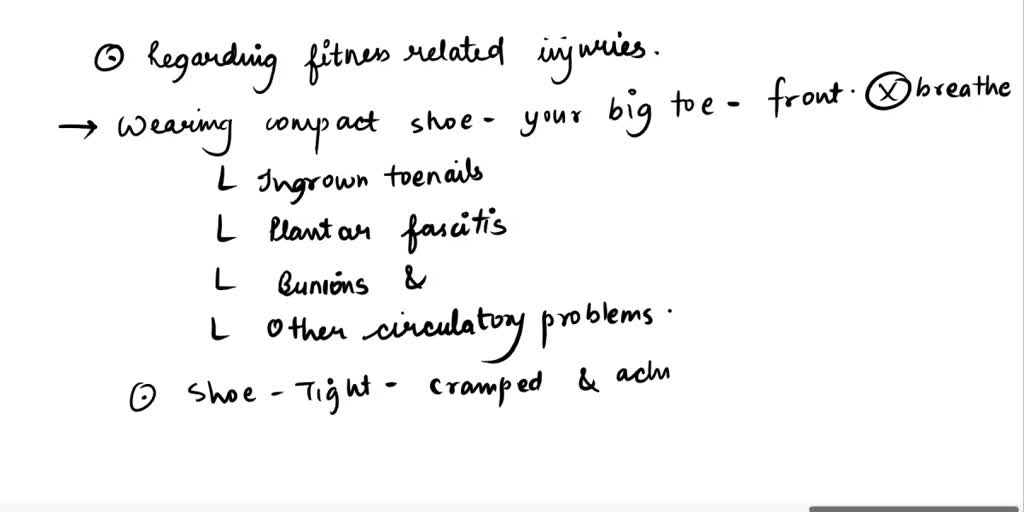 ⊙ Regarding fitness related injuries.
→ Wearing compact shoe - your big toe - front. ⓧ breathe
L Ingrown toenails
L Plantar fascitis
L Bunions &
L Other circulatory problems.
⊙ Shoe - Tight - cramped & achi